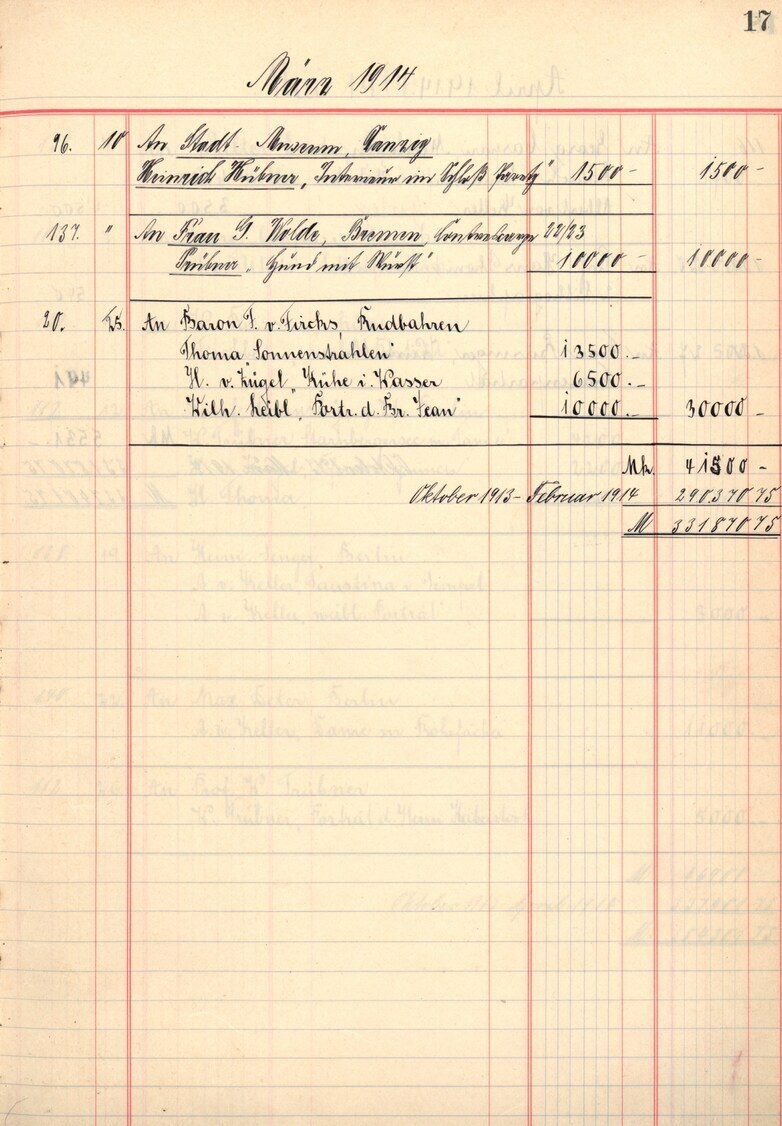 17
März 1914
96. 10 An Stadt-Museum, Danzig
Heinrich Hübner „Interieur im Schloß Paretz" 1500 - 1500 -
137. " An Frau G. Wolde, Bremen, 22/23
Trübner „Hund mit Wurst" 10000 - 10000 -
20. 25. An Baron F. v. Fircks, Rudbahren
Thoma „Sonnenstrahlen" 13500.-
H. v. Zügel „Kühe i. Wasser 6500.-
Wilh. Leibl „Portr. d. Br. Jean" 10000.- 30000 -
Mk. 41500 -
Oktober 1913 - Februar 1914 290370 75
M 331870 75